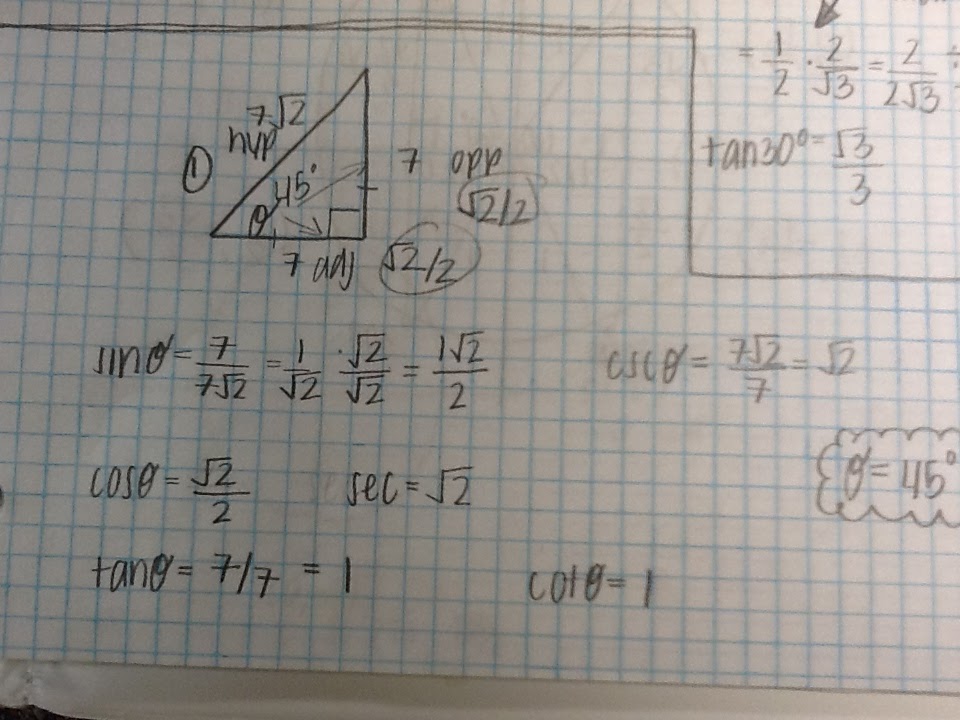 = 1/2 · 2/√3 = 2/2√3 ÷
tan30° = √3/3
①
7√2
hyp
45°
θ
7 opp
√2/2
7 adj √2/2
sinθ = 7/7√2 = 1/√2 · √2/√2 = 1√2/2
cscθ = 7√2/7 = √2
cosθ = √2/2
sec = √2
θ = 45°
tanθ = 7/7 = 1
cotθ = 1